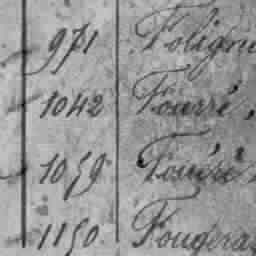 971 Foligne
1042 Fourré,
1059 Fouré
1150 Fougera